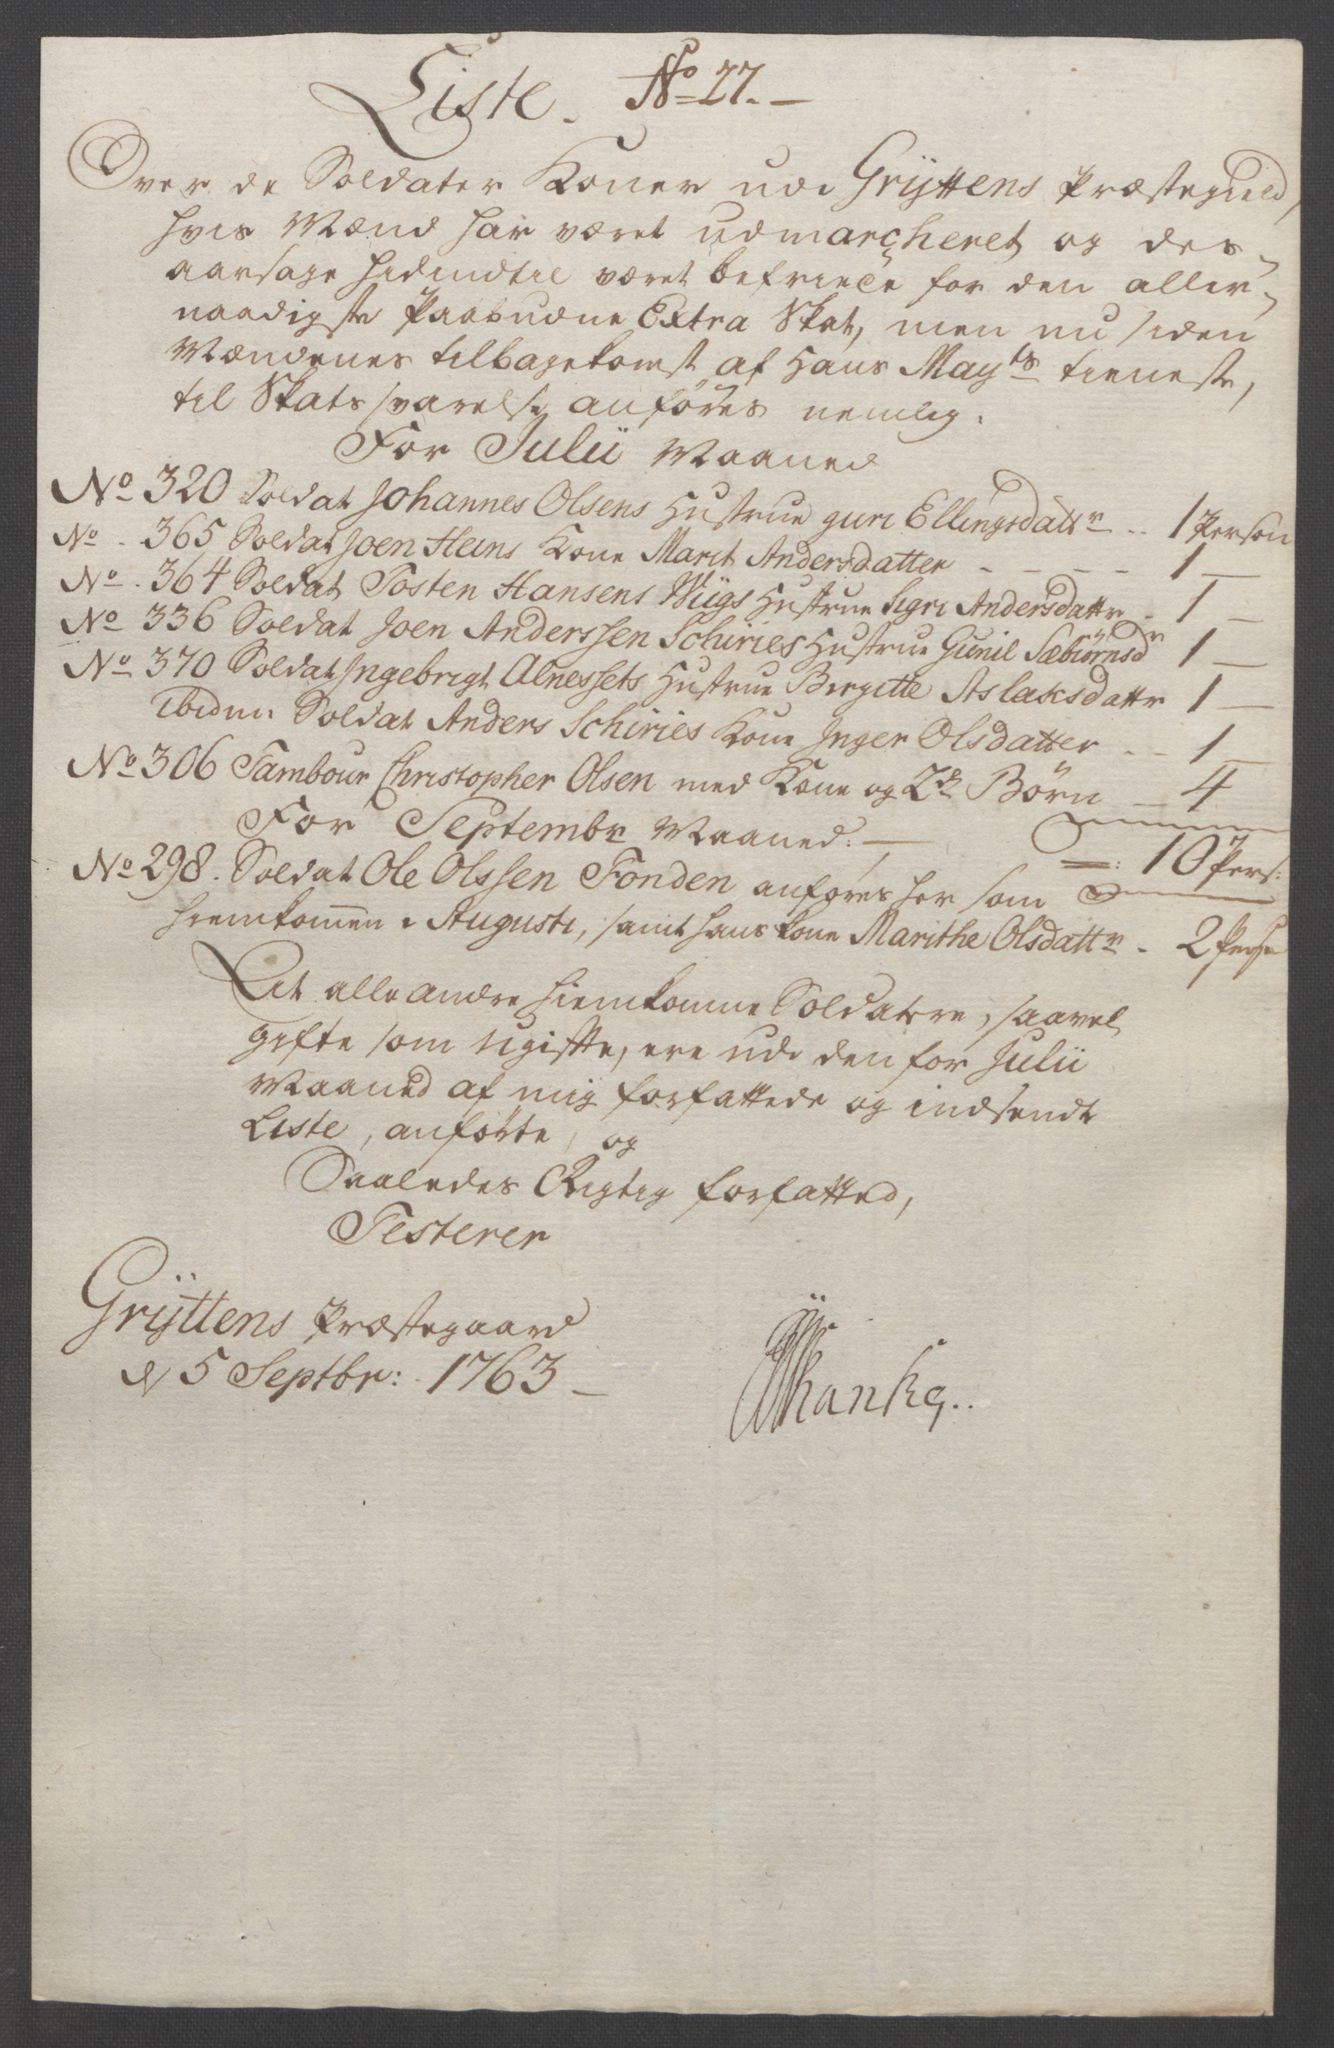 Liste. No 27.
Over de Soldater Koner udi Grÿttens Præstegield,
hvis Mænd har været udmarcheret og des-
aarsage hidindtil været befriede for den aller-
naadigste Paabudne Extra Skat, men nu siden
Mændenes tilbagekomst af Hans Mayts tieneste,
til Skats svarelse anføres nemlig.
For Julii Maaned
No 320 Soldat Johannes Olsens Hustrue guri Ellingsdattr .. 1 Person
No . 365 Soldat Joen Heins Kone Marit Andersdatter - - - - 1 —
No . 364 Soldat Tosten Hansens Wiigs Hustrue Sigri Andersdattr - 1 —
No 336 Soldat Joen Anderssen Schiries Hustrue Gunil Sæbiörnsdr 1 —
No 370 Soldat Ingebrigt Alnessets Hustrue Birgitte Aslaksdattr 1 —
ibidm: Soldat Anders Schiries Kone Inger Olsdatter - - 1 —
No 306 Tambour Christopher Olsen med Kone og 2de Börn — 4
For Septembr Maaned. — =: 10 Pers:
No 298. Soldat Ole Olssen Fonden anføres her som
hiemkommen i Augusti, samt hans kone Marithe Olsdattr - 2 Pers
At alle andre hiemkomne Soldatere, saavel
gifte som ugifte, ere udi den for Julii
Maaned af mig forfattede og indsendte
Liste, anførte, og
Saaledes Rigtig forfatted,
Testerer
Grÿttens Præstegaard
d 5 Septbr: 1763 —